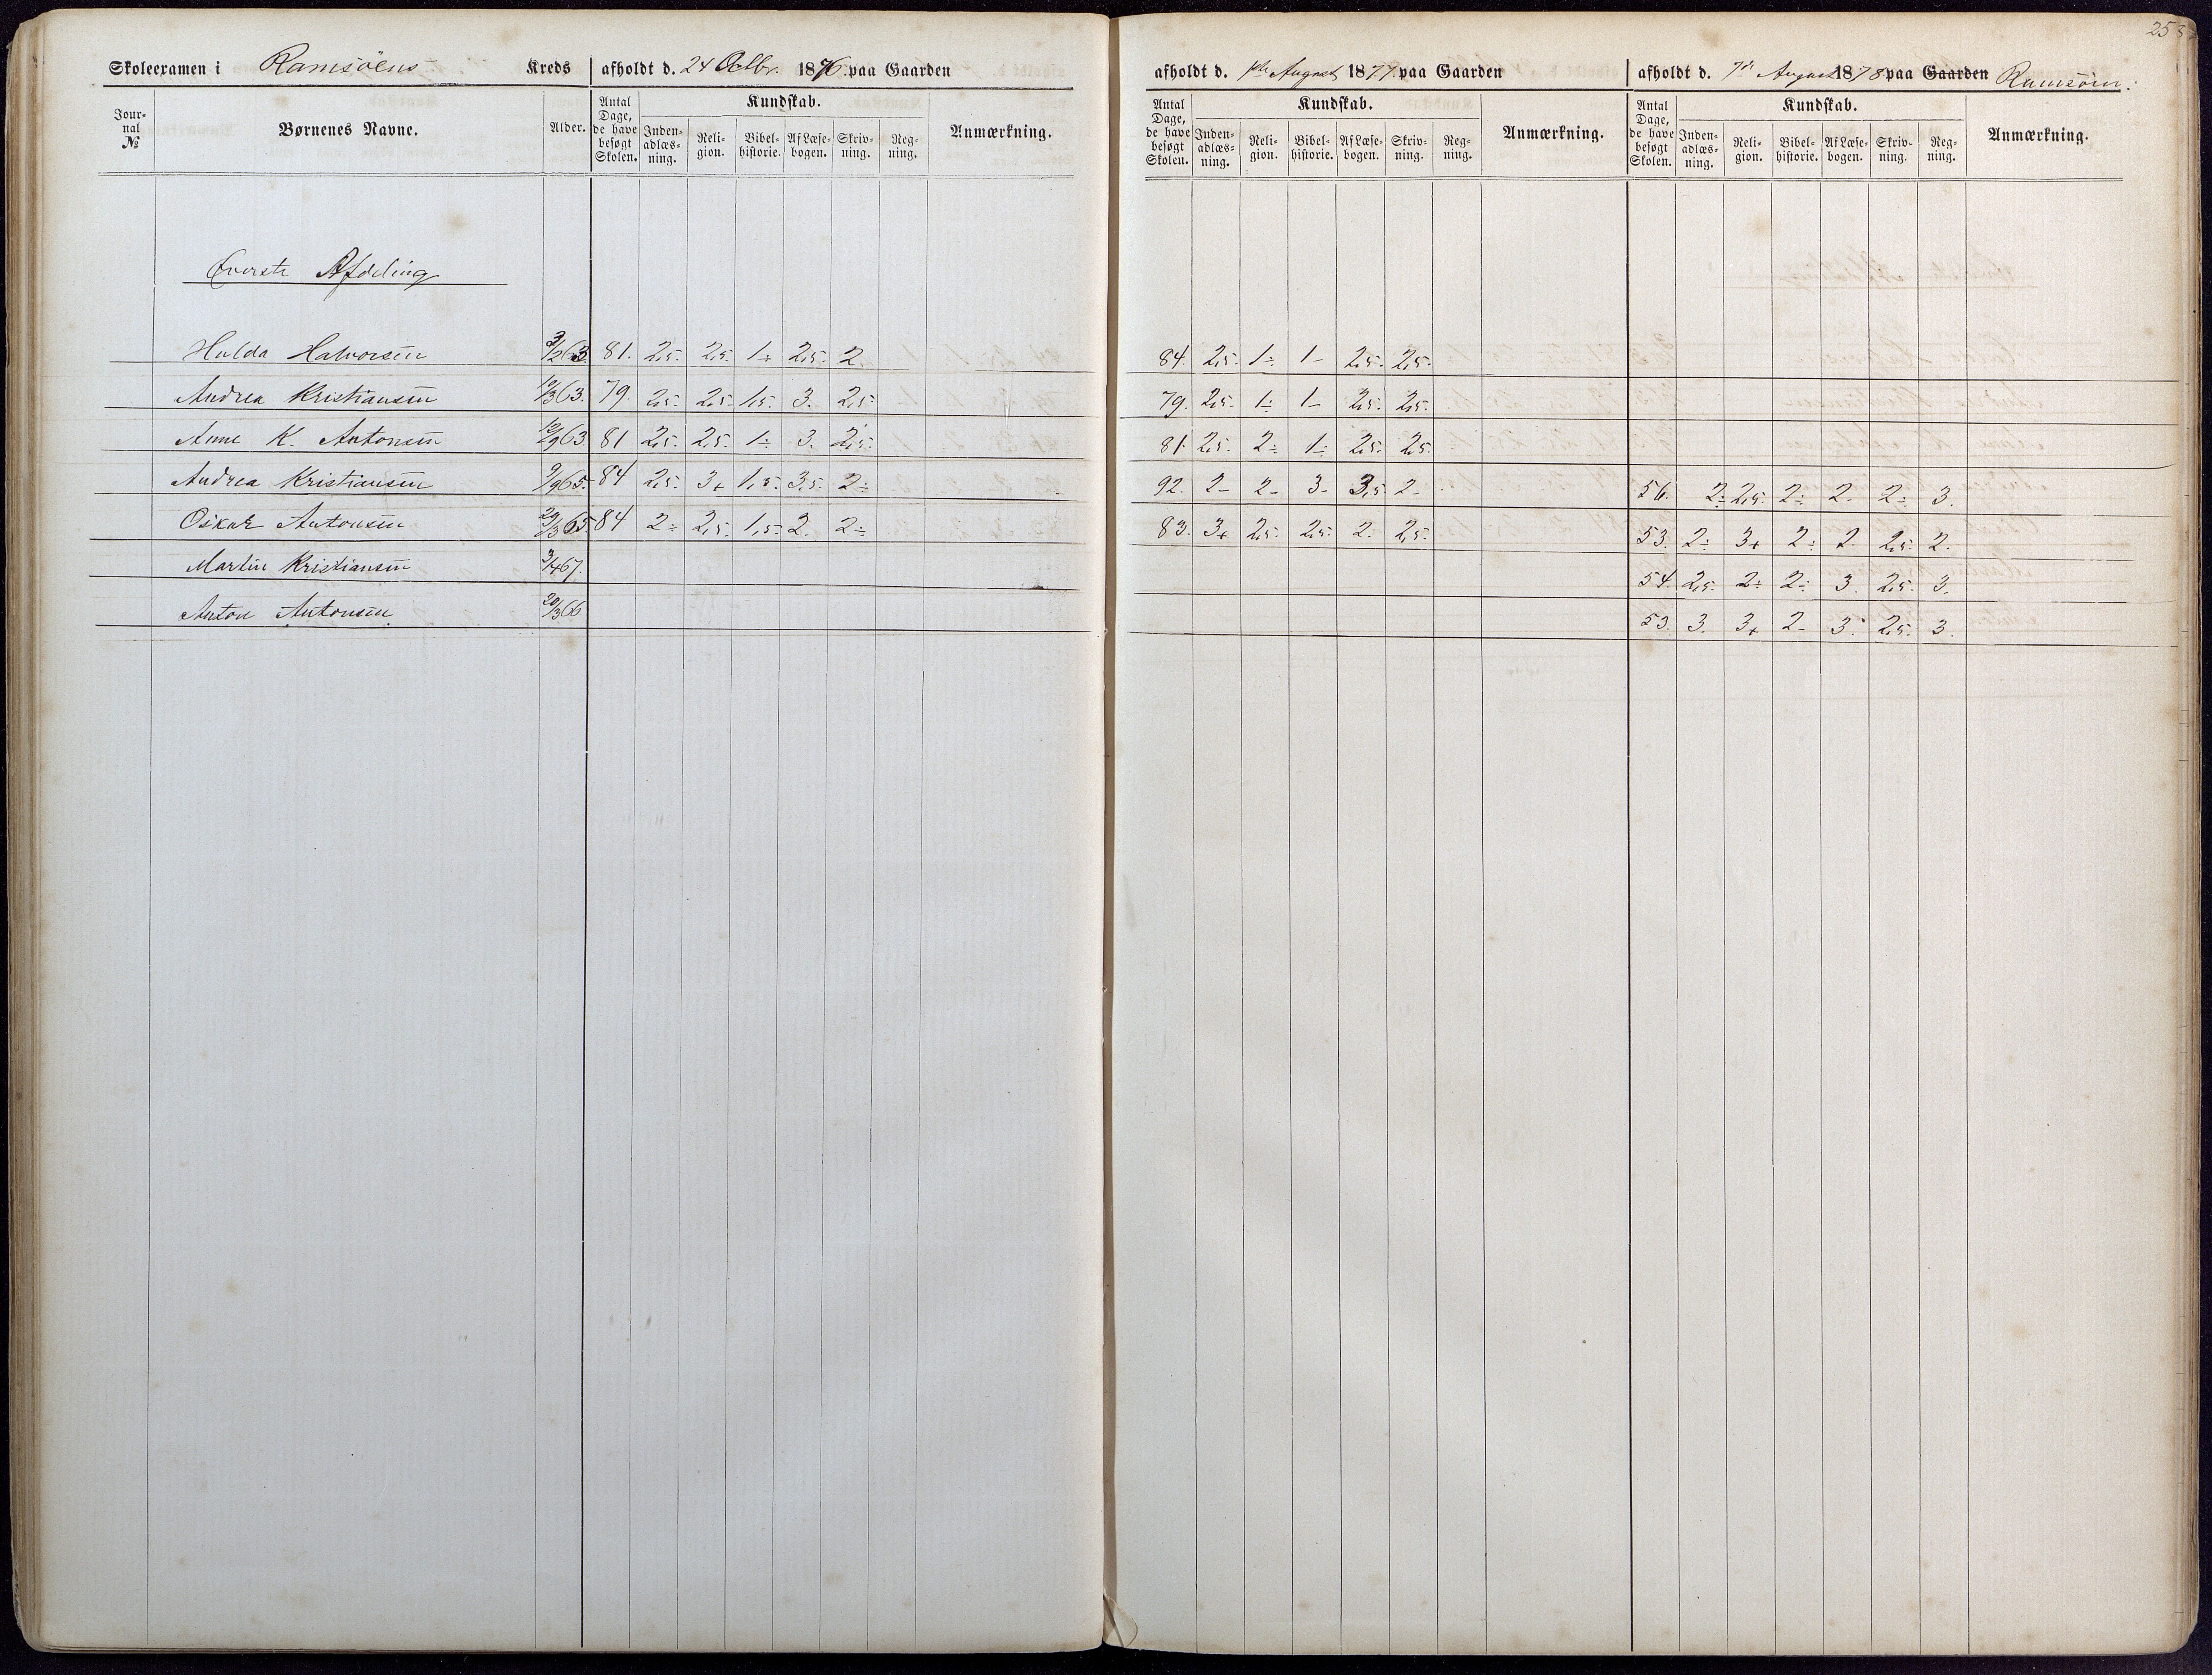 258
Skoleexamen i Ramsöens Kreds afholdt d. 24 Octbr. 1876. paa Gaarden
afholdt d. 1ste August 1877. paa Gaarden
afholdt d. 7de August 1878 paa Gaarden Ramsöen.
Journal № Børnenes Navne. Alder. Antal Dage, de have besøgt Skolen. Kundskab. Indenadlæsning. Religion. Bibelhistorie. Af Læsebogen. Skrivning. Regning. Anmærkning.
Antal Dage, de have besøgt Skolen. Kundskab. Indenadlæsning. Religion. Bibelhistorie. Af Læsebogen. Skrivning. Regning. Anmærkning.
Antal Dage, de have besøgt Skolen. Kundskab. Indenadlæsning. Religion. Bibelhistorie. Af Læsebogen. Skrivning. Regning. Anmærkning.
Øverste Afdeling
Hulda Halvorsen 3/12 63. 81. 2,5. 2,5. 1+ 2,5. 2. 84. 2,5. 1÷ 1- 2,5. 2,5.
Andrea Kristiansen 19/3 63. 79. 2,5. 2,5. 1,5. 3. 2,5. 79. 2,5. 1÷ 1- 2,5. 2,5.
Anne K. Antonsen 12/9 63. 81 2,5. 2,5. 1÷ 3. 2,5. 81. 2,5. 2÷ 1÷ 2,5. 2,5.
Andrea Kristiansen 9/9 65. 84 2,5. 3+ 1,5. 3,5. 2÷ 92. 2- 2- 3- 3,5 2- 56. 2÷ 2,5. 2÷ 2. 2÷ 3.
Oskar Antonsen 29/3 65 84 2÷ 2,5. 1,5. 2. 2÷ 83. 3+ 2,5. 2,5. 2. 2,5. 53. 2÷ 3+ 2÷ 2. 2,5. 2.
Martin Kristiansen 3/4 67. 54. 2,5. 2÷ 2÷ 3. 2,5. 3.
Anton Antonsen 20/3 66 53. 3. 3+ 2- 3. 2,5. 3.